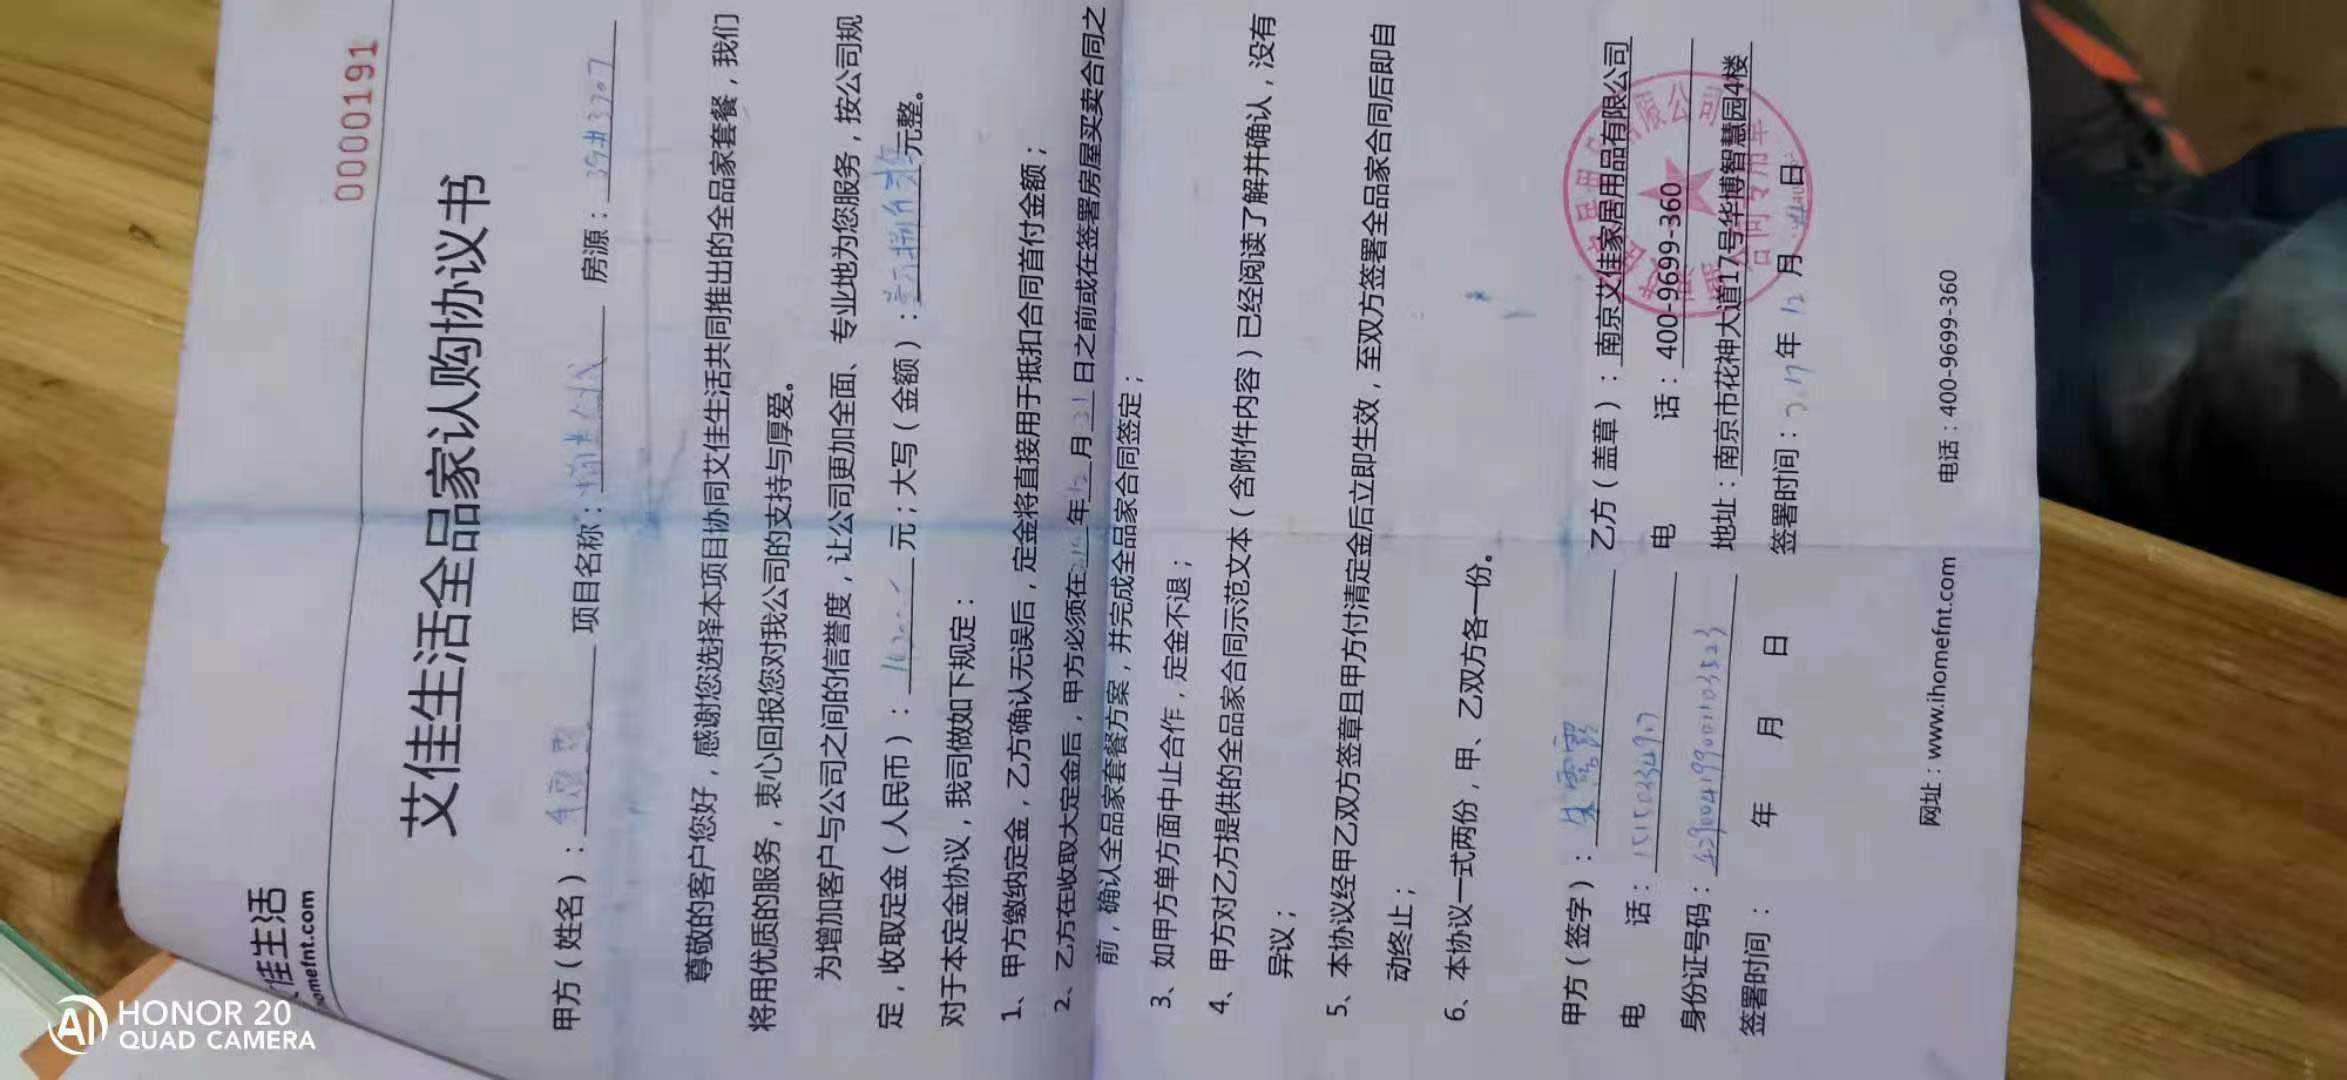 佳生活
homefnt.com
00001191
艾佳生活全品家认购协议书
甲方（姓名）： 项目名称： 房源：39#3307
尊敬的客户您好，感谢您选择本项目协同艾佳生活共同推出的全品家套餐，我们
将用优质的服务，衷心回报您对我公司的支持与厚爱。
为增加客户与公司之间的信誉度，让公司更加全面、专业地为您服务，按公司规
定，收取定金（人民币）： 元；大写（金额）： 元整。
对于本定金协议，我司做如下规定：
1、甲方缴纳定金，乙方确认无误后，定金将直接用于抵扣合同首付金额；
2、乙方在收取大定金后，甲方必须在 年12月31日之前或在签署房屋买卖合同之
前，确认全品家套餐方案，并完成全品家合同签定；
3、如甲方单方面中止合作，定金不退；
4、甲方对乙方提供的全品家合同示范文本（含附件内容）已经阅读了解并确认，没有
异议；
5、本协议经甲乙双方签章且甲方付清定金后立即生效，至双方签署全品家合同后即自
动终止；
6、本协议一式两份，甲、乙双方各一份。
甲方（签字）：朱露露 乙方（盖章）：南京艾佳家居用品有限公司
电 话： 电 话：400-9699-360
身份证号码： 地址：南京市花神大道17号华博智慧园4楼
签署时间： 年 月 日 签署时间：2017年12月 日
合同专用章
网址：www.ihomefnt.com 电话：400-9699-360
HONOR 20
QUAD CAMERA
AI